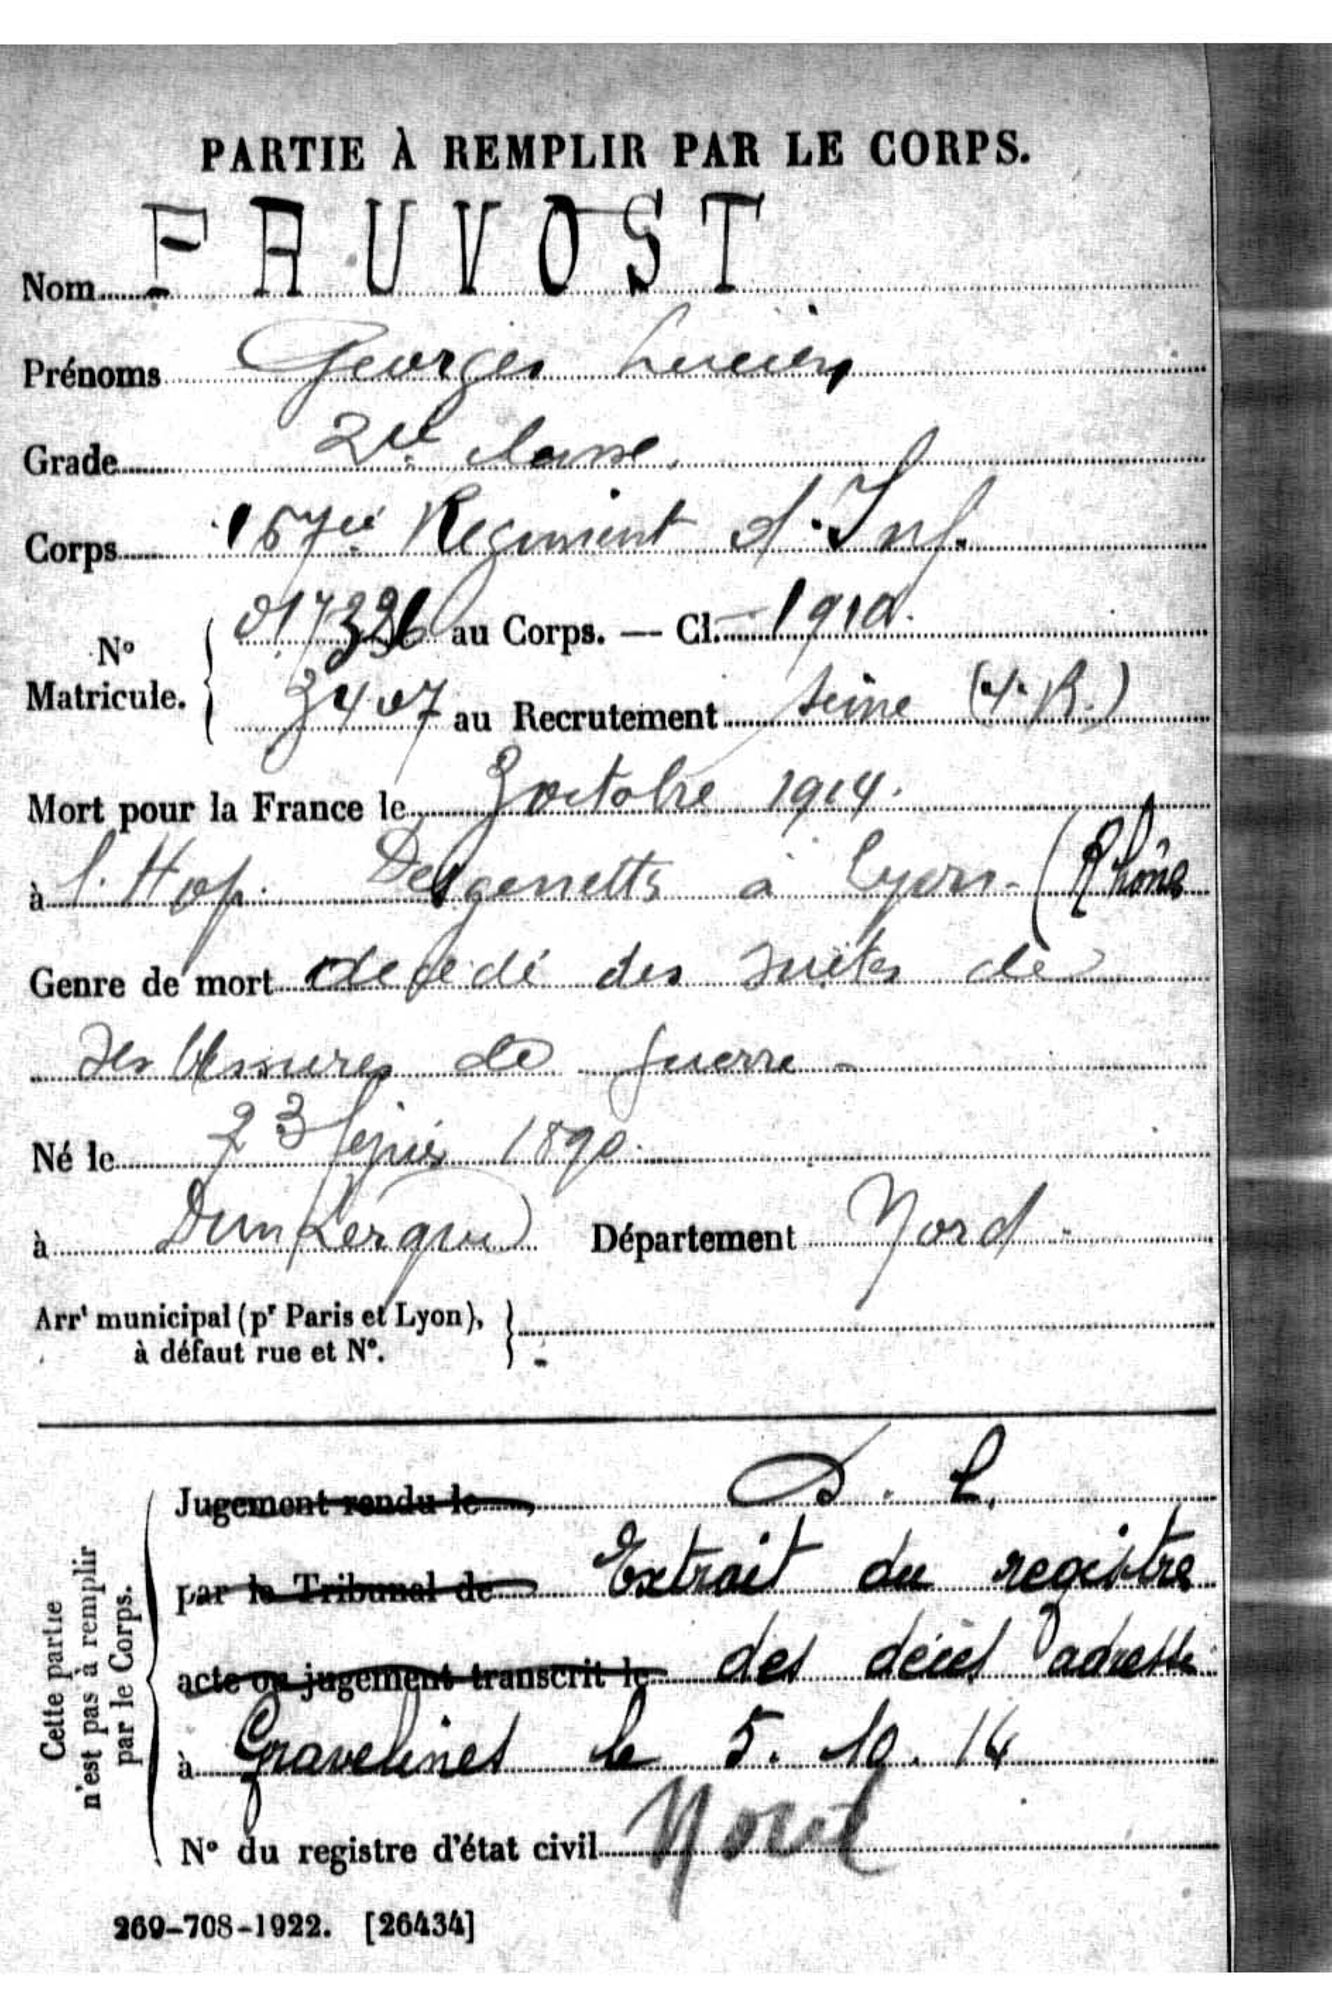 PARTIE À REMPLIR PAR LE CORPS.
Nom FAUVOST
Prénoms Georges Lucien
Grade 2e classe.
Corps 157e Regiment d'Inf.
N° Matricule. { 017396 au Corps. — Cl. 1910.
3407 au Recrutement Seine (4. B.)
Mort pour la France le 3 octobre 1914.
à l. Hop. Desgenettes à Lyon - (Rhône
Genre de mort décédé des suites de
ses blessures de guerre -
Né le 23 1890.
à Dunkerque Département Nord.
Arrt municipal (pr Paris et Lyon), }
à défaut rue et N°.
Cette partie
n'est pas à remplir
par le Corps.
Jugement rendu le D. L.
par le Tribunal de Extrait du registre
acte ou jugement transcrit le des décès adressé
à Gravelines le 5. 10. 14
N° du registre d'état civil Nord
269-708-1922. [26434]